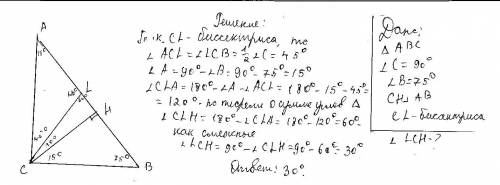 Решение:
Т.к. CL - биссектриса, то
∠ACL = ∠LCB = 1/2 ∠C = 45°
∠A = 90° - ∠B = 90° - 75° = 15°
∠CLA = 180° - ∠A - ∠ACL = 180° - 15° - 45° =
= 120° - по теореме о сумме углов Δ
∠CLH = 180° - ∠CLA = 180° - 120° = 60° -
как смежные
∠LCH = 90° - ∠CLH = 90° - 60° = 30°
Ответ: 30°.
Дано:
Δ ABC
∠C = 90°
∠B = 75°
CH ⊥ AB
CL - биссектриса
∠LCH - ?
A
15°
L
H
45°
30°
15°
75°
C
B